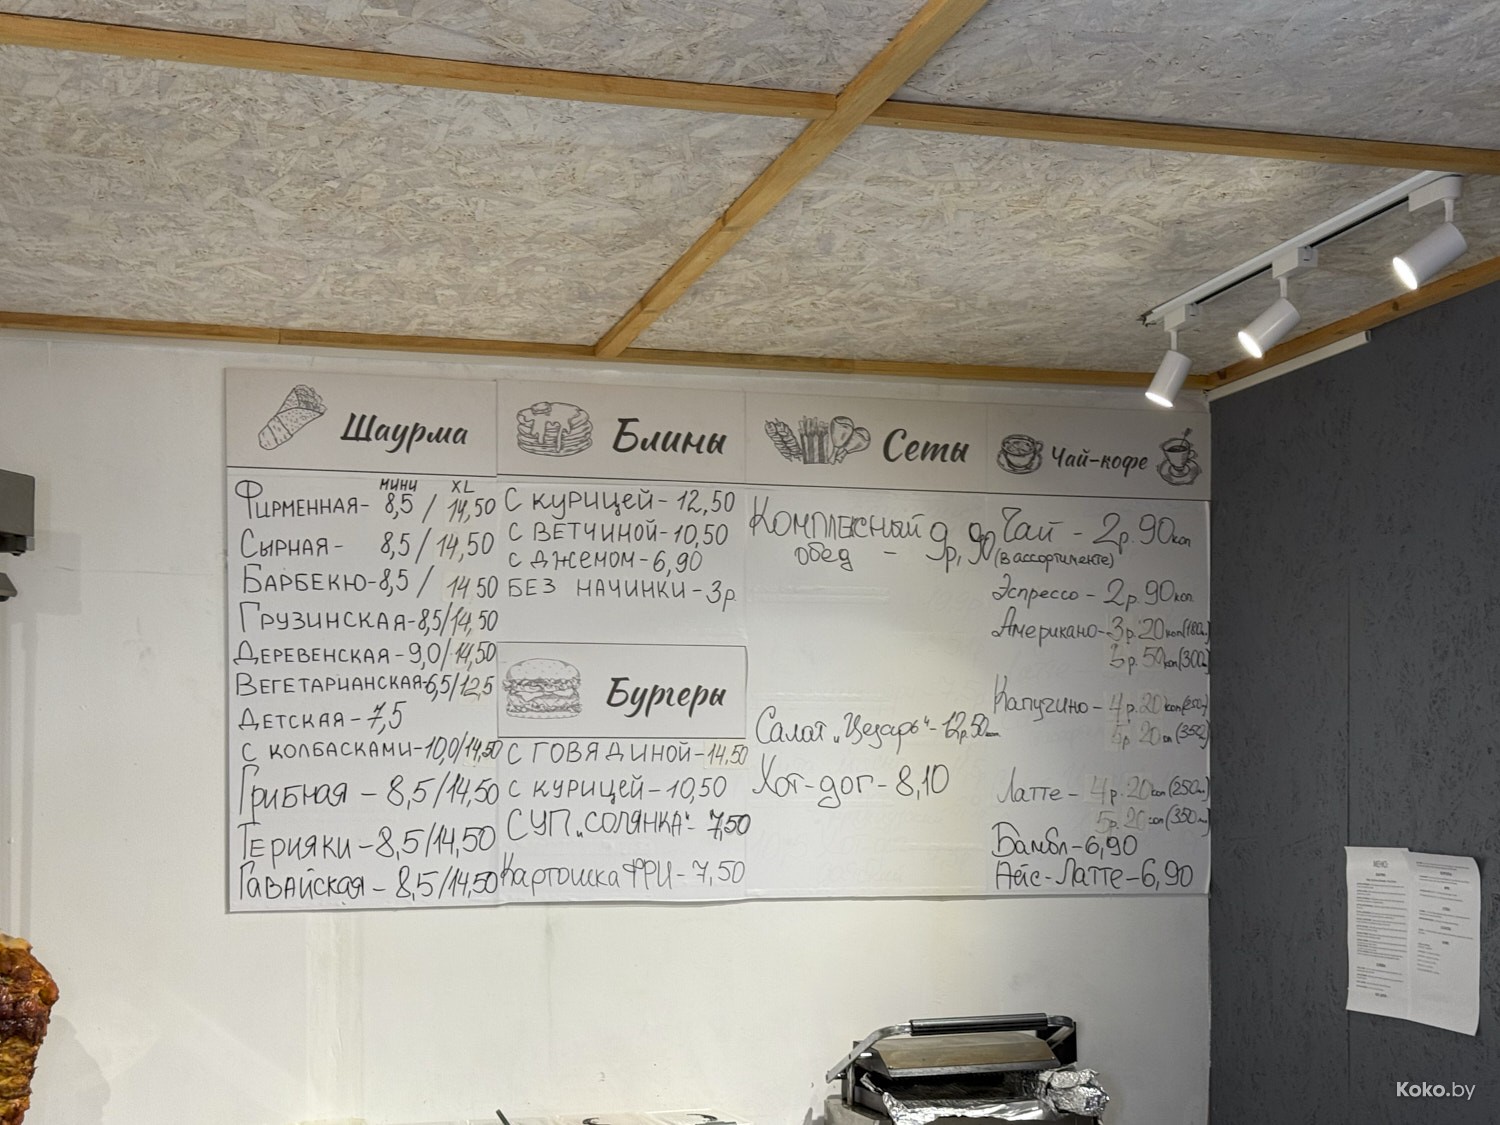 Шаурма
мини XL
Фирменная- 8,5 / 14,50
Сырная- 8,5/14,50
Барбекю-8,5 / 14 50
Грузинская-8,5/14,50
Деревенская-9,0/14,50
Вегетарианская-6,5/12,5
Детская-7,5
с колбасками-10,0/14,50
Грибная - 8,5/14,50
Терияки-8,5/14,50
Гавайская-8,5/14,50
Блины
С курицей-12,50
с ветчиной-10,50
с джемом-6,90
БЕЗ НАЧИНКИ-3р.
Бургеры
с говядиной-14,50
с курицей-10,50
Суп „Солянка"-7,50
Картошка ФРИ-7,50
Сеты
Комплексный
обед - 9р,90
Салат „Цезарь"-12р.50коп
Хот-дог-8,10
Чай-кофе
Чай - 2р.90коп
(в ассортименте)
Эспрессо - 2р.90коп
Американо-3р.20коп
Капучино-4р.20коп
Латте-4р.20коп(250мл)
5р.20коп(350мл)
Бамбл-6,90
Айс-Латте-6,90
МЕНЮ
Koko.by